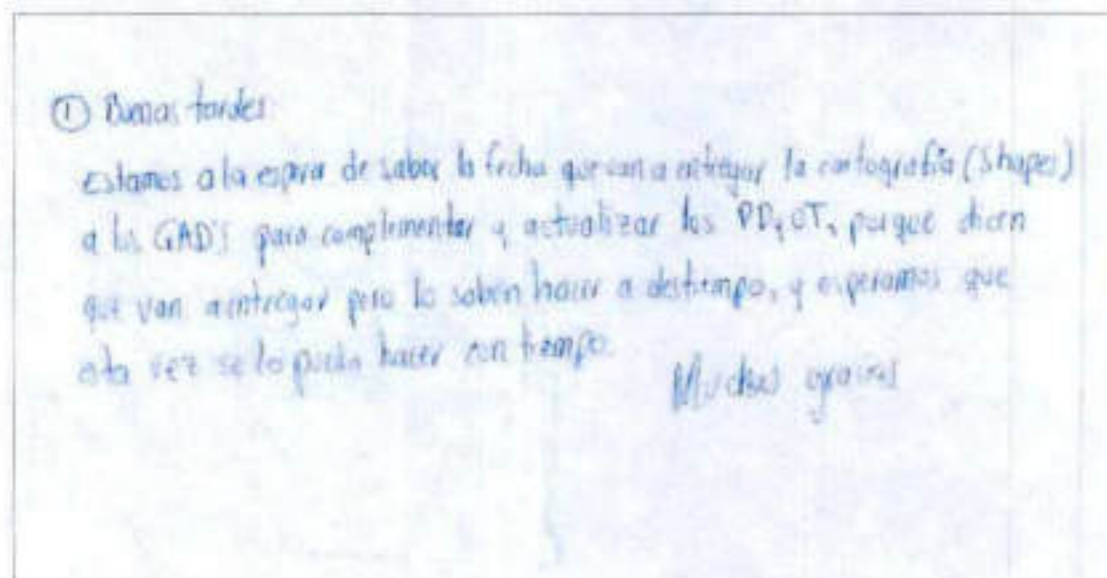 ① Buenas tardes:
Estamos a la espera de saber la fecha que van a entregar la cartografía (Shapes)
a los GAD'S para complementar y actualizar los PD y OT, porque dicen
que van a entregar pero lo saben hacer a destiempo, y esperamos que
esta vez se lo pueda hacer con tiempo.
Muchas gracias